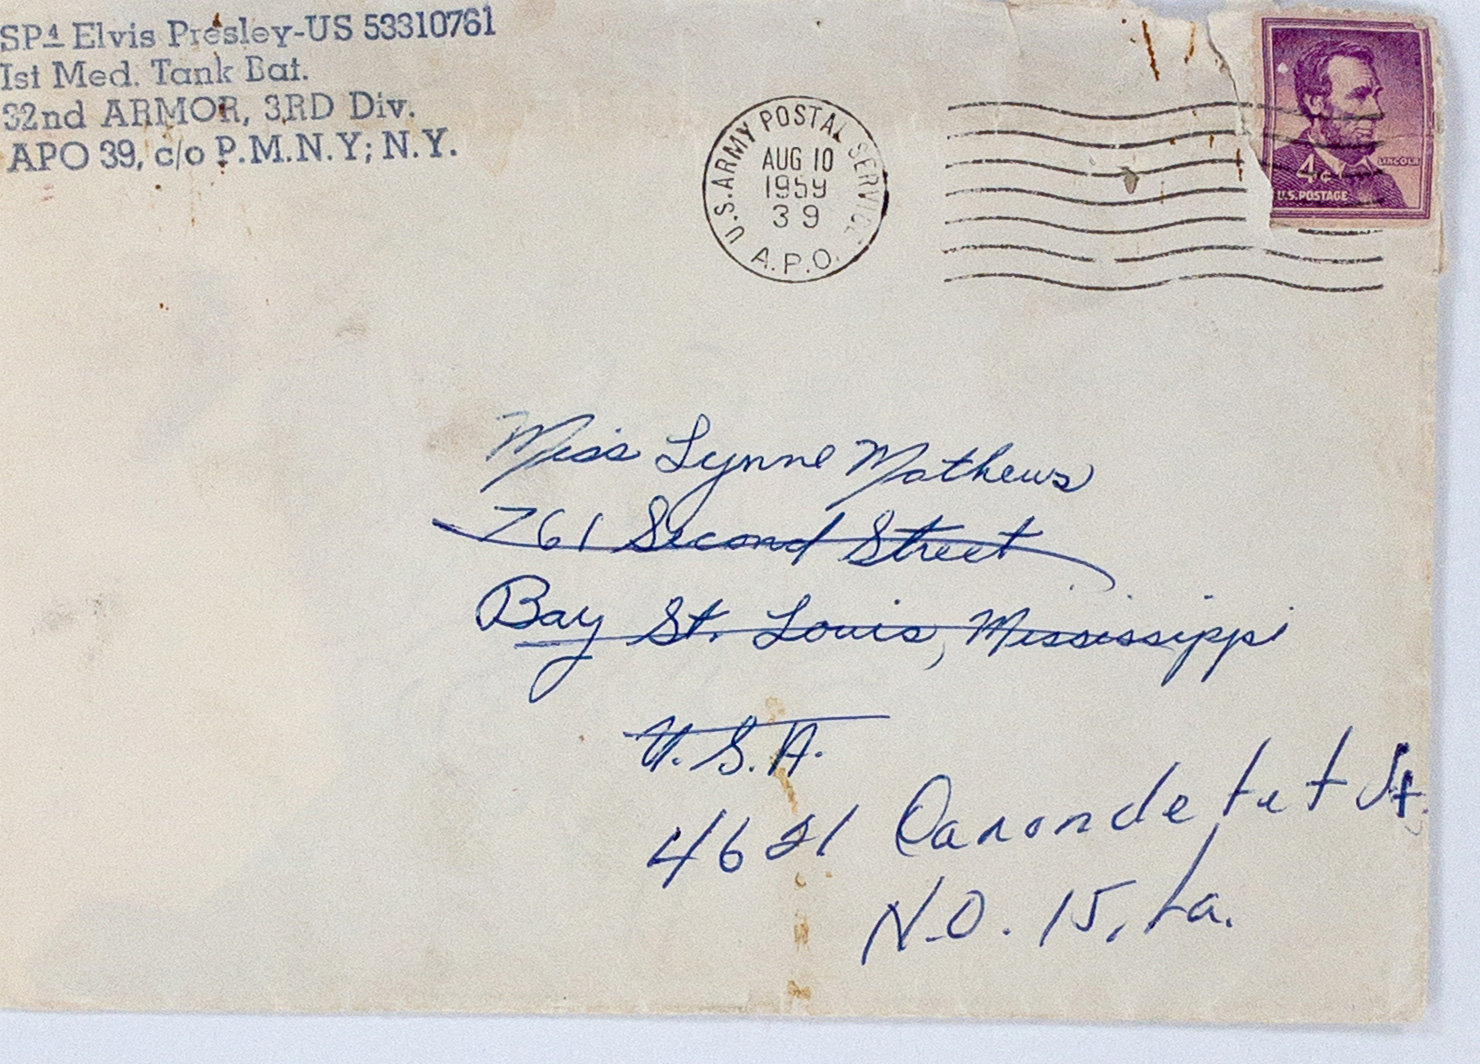 SP4 Elvis Presley-US 53310761
1st Med. Tank Bat.
32nd ARMOR, 3RD Div.
APO 39, c/o P.M.N.Y; N.Y.
U.S. ARMY POSTAL SERVICE
AUG 10
1959
39
A.P.O.
LINCOLN
4¢
U.S. POSTAGE
Miss Lynne Mathews
761 Second Street
Bay St. Louis, Mississippi
U.S.A.
4621 Carondelet St.
N.O. 15, La.